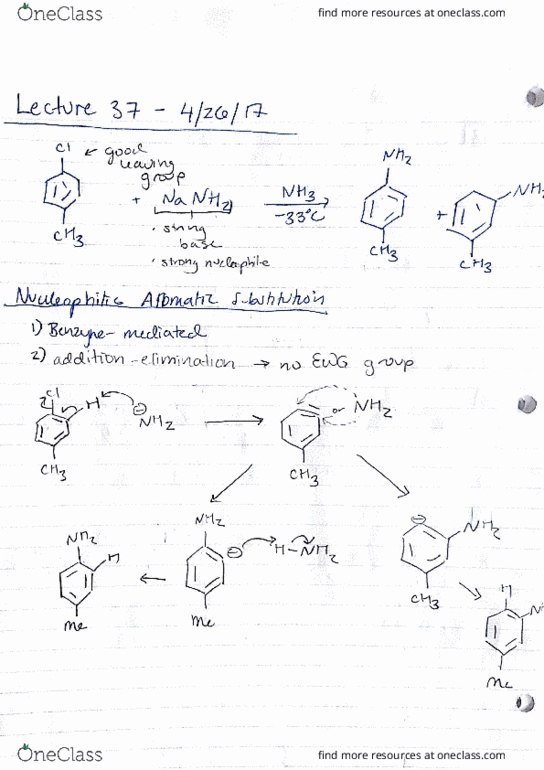 OneClass find more resources at oneclass.com
Lecture 37 - 4/26/17
Cl ← good
leaving
group
+ NaNH2
NH3
-33°C
NH2
+
NH2
CH3
• strong
base
• strong nucleophile
CH3
CH3
Nucleophilic Aromatic Substitution
1) Benzyne-mediated
2) addition-elimination → no EWG group
Cl
H
⊖NH2
or NH2
CH3
CH3
NH2
H
NH2
⊖
H-NH2
⊖
NH2
CH3
Me
Me
H
N
Me
OneClass find more resources at oneclass.com